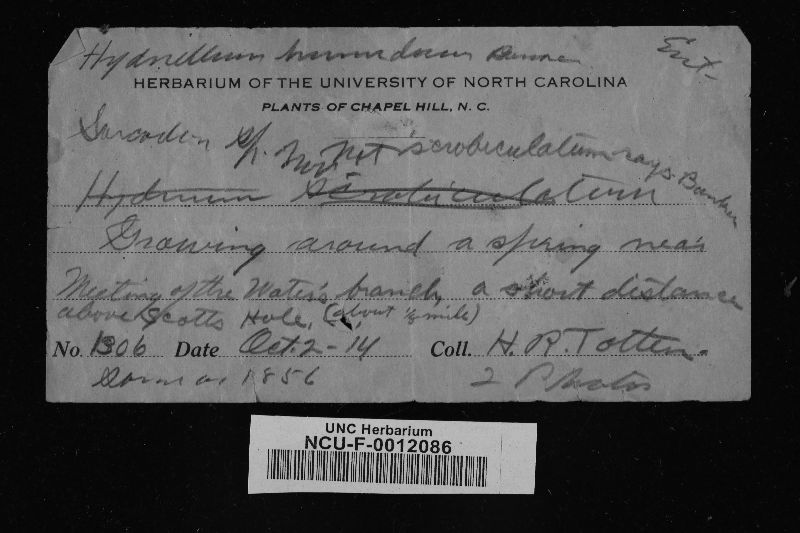 Hydnellum
Ext.
HERBARIUM OF THE UNIVERSITY OF NORTH CAROLINA
PLANTS OF CHAPEL HILL, N. C.
Sarcodon sp. Not scrobiculatum says Banker
Hydnum scrobiculatum
Growing around a spring near
Meeting of the Waters branch, a short distance
above Scotts Hole, (about ½ mile)
No. 1306 Date Oct. 2-14 Coll. H. R. Totten.
Same as 1856 2 Photos
UNC Herbarium
NCU-F-0012086